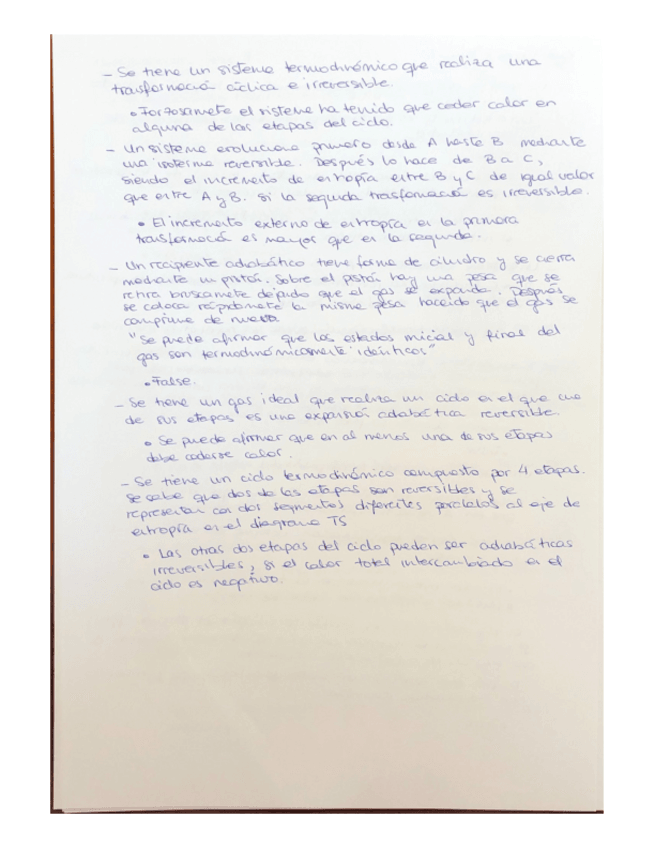 - Se tiene un sistema termodinámico que realiza una
trasformació cíclica e irreversible.
• Forzosamete el sistema ha tenido que ceder calor en
alguna de las etapas del ciclo.
- Un sistema evoluciona primero desde A hasta B mediante
una isoterma reversible. Después lo hace de B a C,
siendo el incremeto de etropía etre B y C de igual valor
que etre A y B. Si la seguda trasformació es irreversible.
• El incremeto externo de etropía en la primera
trasformació es mayor que en la seguda.
- Un recipiete adiabático tiene forma de cilindro y se cierra
mediate un pistón. Sobre el pistón hay una pesa que se
retira bruscamete dejando que el gas se expanda. Después
se coloca rápidamete la misma pesa haciedo que el gas se
comprima de nuevo.
"Se puede afirmar que los estados inicial y final del
gas son termodinámicamete idénticos"
• False.
- Se tiene un gas ideal que realiza un ciclo en el que una
de sus etapas es una expansió adiabática reversible
• Se puede afirmar que en al menos una de sus etapas
debe cederse calor.
- Se tiene un ciclo termodinámico compuesto por 4 etapas.
Se sabe que dos de las etapas son reversibles y se
represetan con dos segmetos diferetes paralelos al eje de
etropía en el diagrama TS
• Las otras dos etapas del ciclo pueden ser adiabáticas
irreversibles, si el calor total intercambiado en el
ciclo es negativo.